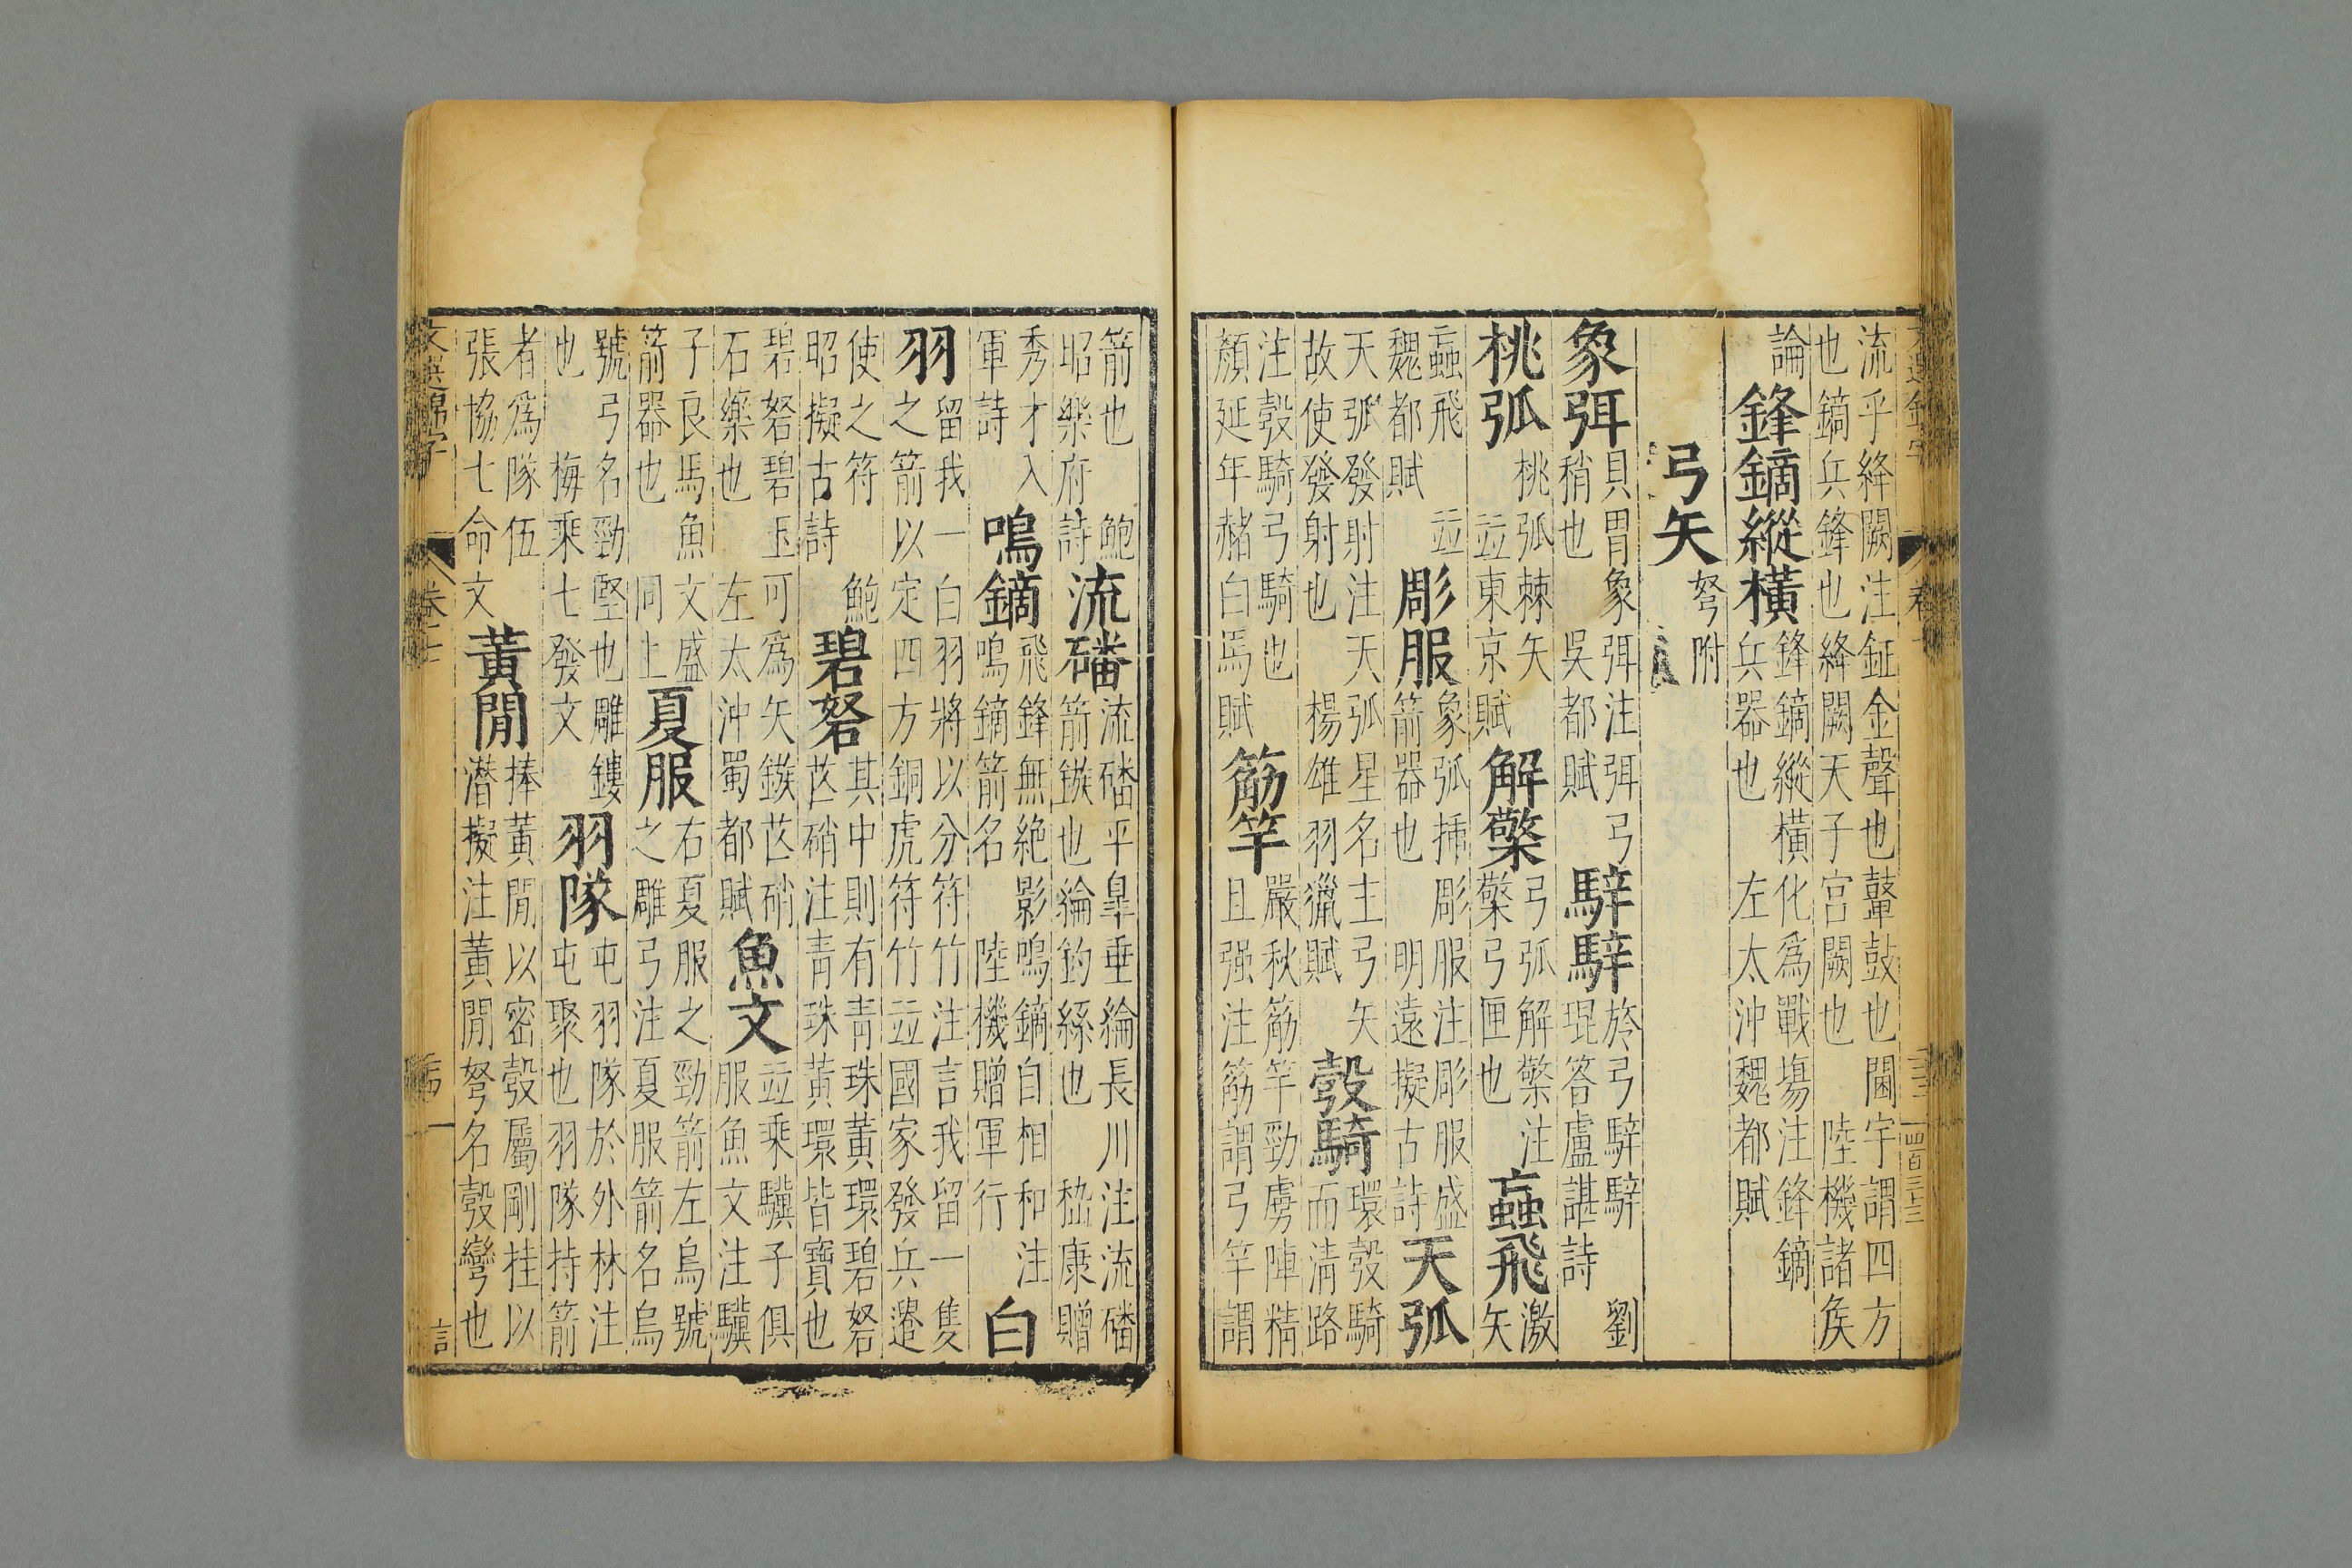 流乎絳闕注鉦金聲也鼙鼓也閫宇謂四方
也鏑兵鋒也絳闕天子宮闕也　陸機諸侯
論
鋒鏑縱橫
鋒鏑縱橫化為戰場注鋒鏑
兵器也　左太沖魏都賦
弓矢
弩附
象弭
貝胄象弭注弭弓
稍也　吳都賦
騂騂
於弓騂騂　劉
琨答盧諶詩
桃弧
桃弧棘矢
並東京賦
解檠
弓弧解檠注
檠弓匣也
蝱飛
激
矢
蝱飛　並
魏都賦
彫服
象弧揷彫服注彫服盛
箭器也　明遠擬古詩
天弧
天弧發射注天弧星名主弓矢
故使發射也　楊雄羽獵賦
彀騎
環彀騎
而清路
注彀騎弓騎也
顏延年赭白馬賦
筋竿
嚴秋筋竿勁虜陣精
且强注筋謂弓竿謂
箭也　鮑
昭樂府詩
流磻
流磻平皐垂綸長川注流磻
箭鏃也綸釣絲也　嵇康贈
秀才入
軍詩
鳴鏑
飛鋒無絶影鳴鏑自相和注
鳴鏑箭名　陸機贈軍行
白
羽
留我一白羽將以分符竹注言我留一隻
之箭以定四方銅虎符竹並國家發兵遣
使之符　鮑
昭擬古詩
碧砮
其中則有青珠黃環碧砮
芒硝注青珠黃環皆寶也
碧砮碧玉可為矢鏃芒硝
石藥也　左太沖蜀都賦
魚文
並乘驥子俱
服魚文注驥
子良馬魚文盛
箭器也　同上
夏服
右夏服之勁箭左烏號
之雕弓注夏服箭名烏
號弓名勁堅也雕鏤
也　梅乘七發文
羽隊
屯羽隊於外林注
屯聚也羽隊持箭
者為隊伍
張協七命文
黃閒
捧黃閒以密彀屬剛挂以
潛擬注黃閒弩名彀彎也
文選錦字
言